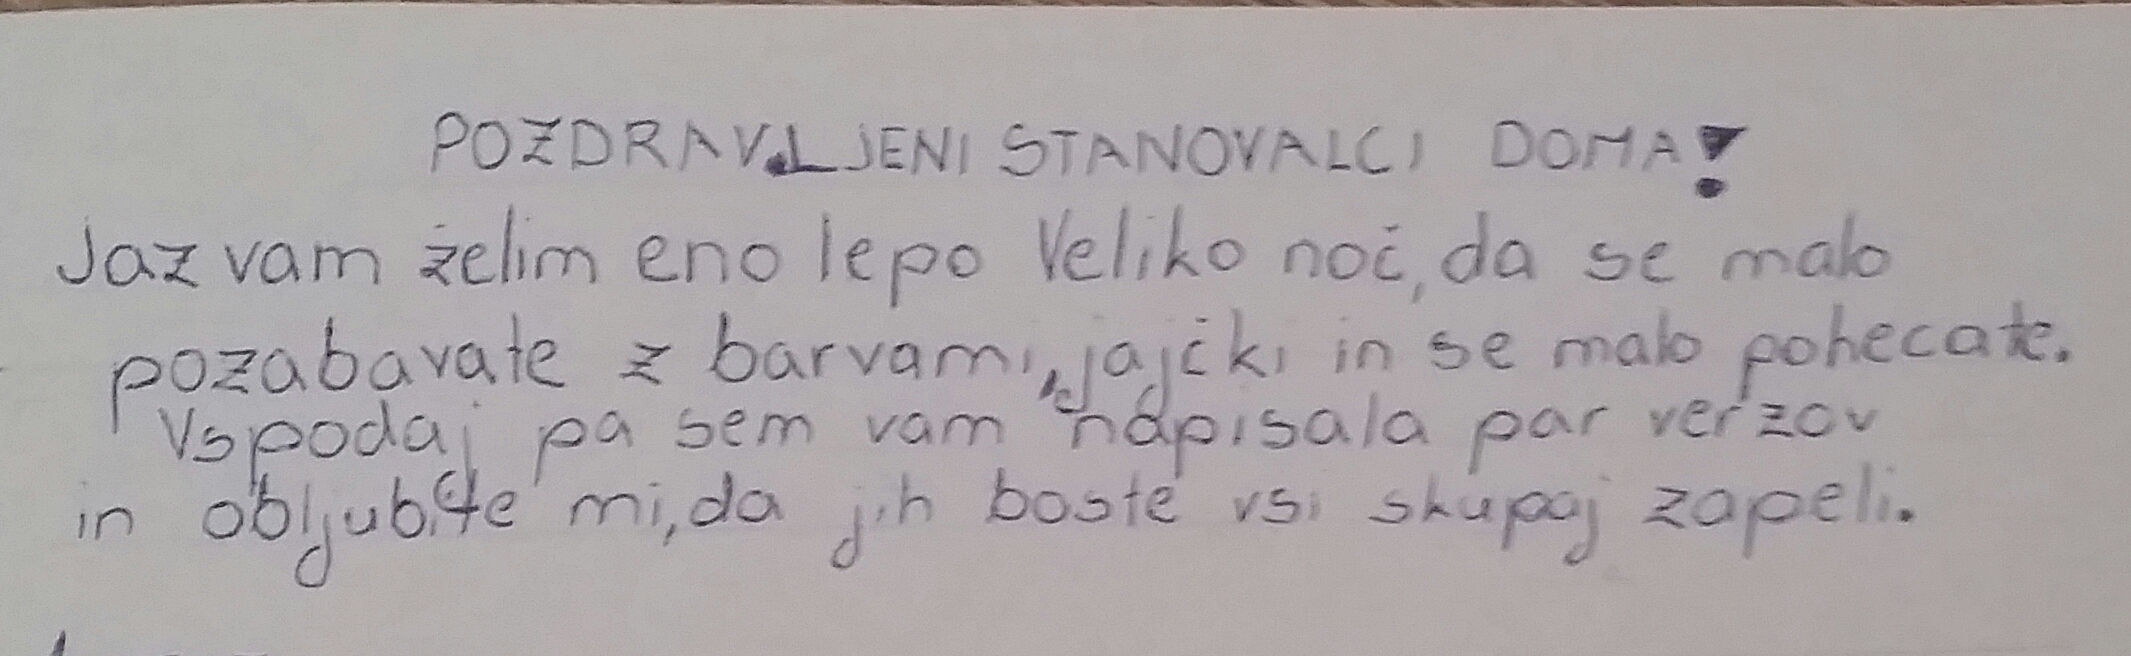 POZDRAVLJENI STANOVALCI DOMA!
Jaz vam želim eno lepo Veliko noč, da se malo
pozabavate z barvami, jajčki in se malo pohecate.
Vspodaj pa sem vam napisala par verzov
in obljubite mi, da jih boste vsi skupaj zapeli.